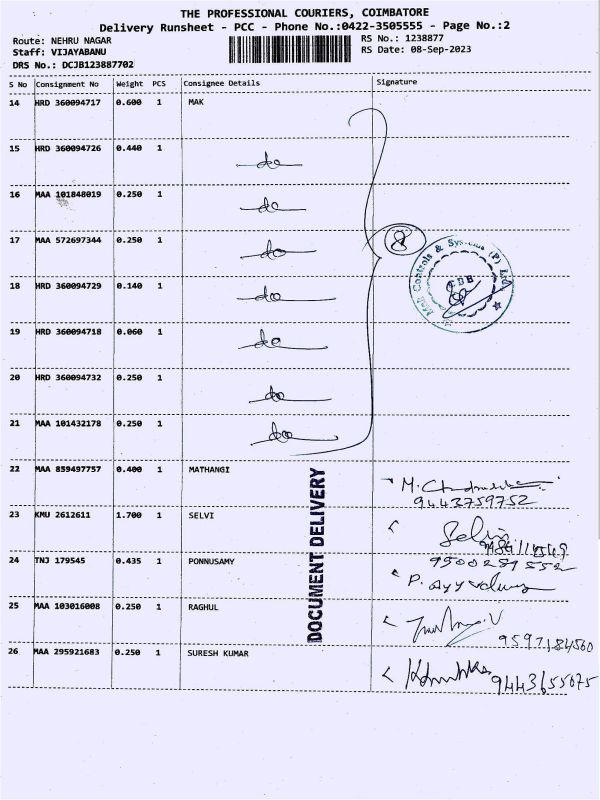 THE PROFESSIONAL COURIERS, COIMBATORE
Delivery Runsheet - PCC - Phone No.:0422-3505555 - Page No.:2
Route: NEHRU NAGAR
RS No.: 1238877
Staff: VIJAYABANU
RS Date: 08-Sep-2023
DRS No.: DCJB123887702
S No Consignment No Weight PCS Consignee Details Signature
14 HRD 360094717 0.600 1 MAK
15 HRD 360094726 0.440 1 do
16 MAA 101848019 0.250 1 do
17 MAA 572697344 0.250 1 do
8
18 HRD 360094729 0.140 1 do
Controls & Systems (P) Ltd
CBB
19 HRD 360094718 0.060 1 do
20 HRD 360094732 0.250 1 do
21 MAA 101432178 0.250 1 do
22 MAA 859497757 0.400 1 MATHANGI
9443759752
23 KMU 2612611 1.700 1 SELVI Selvi
24 TNJ 179545 0.435 1 PONNUSAMY 9500289552
P.
25 MAA 103016008 0.250 1 RAGHUL
9597184560
26 MAA 295921683 0.250 1 SURESH KUMAR 9443655075
DOCUMENT DELIVERY